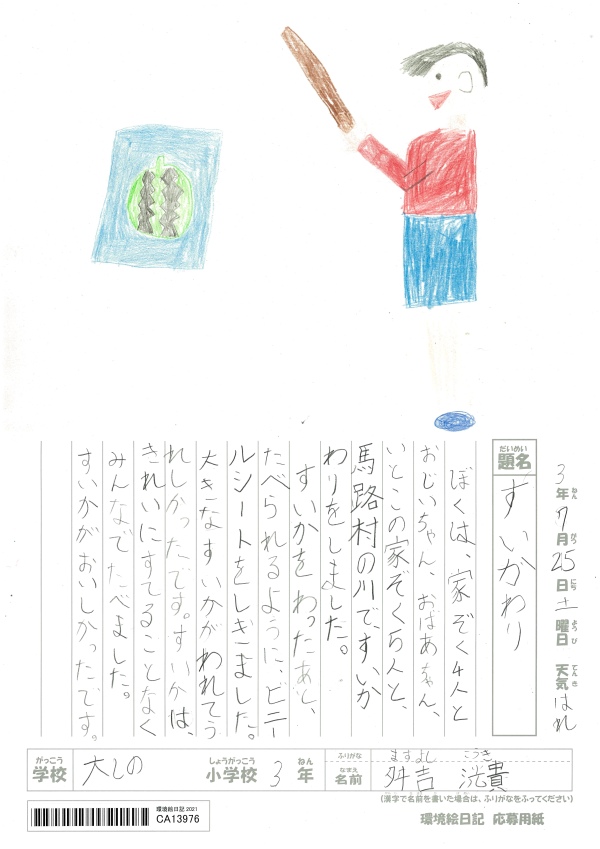 3年7月25日土曜日 天気はれ
ねん がつ にち ようび てんき
だいめい
題名 すいかわり
ぼくは、家ぞく4人と
おじいちゃん、おばあちゃん、
いとこの家ぞく5人と、
馬路村の川で、すいか
わりをしました。
すいかをわったあと、
たべられるように、ビニー
ルシートをしぎました。
大きなすいかがわれてう
れしかったです。すいかは、
きれいにすてることなく
みんなでたべました。
すいかがおいしかったです。
がっこう しょうがっこう ねん
学校 大しの 小学校 3年
ふりがな ますよし こうき
なまえ
名前 舛吉 洸貴
(漢字で名前を書いた場合は、ふりがなをふってください)
環境絵日記2021
CA13976
環境絵日記 応募用紙